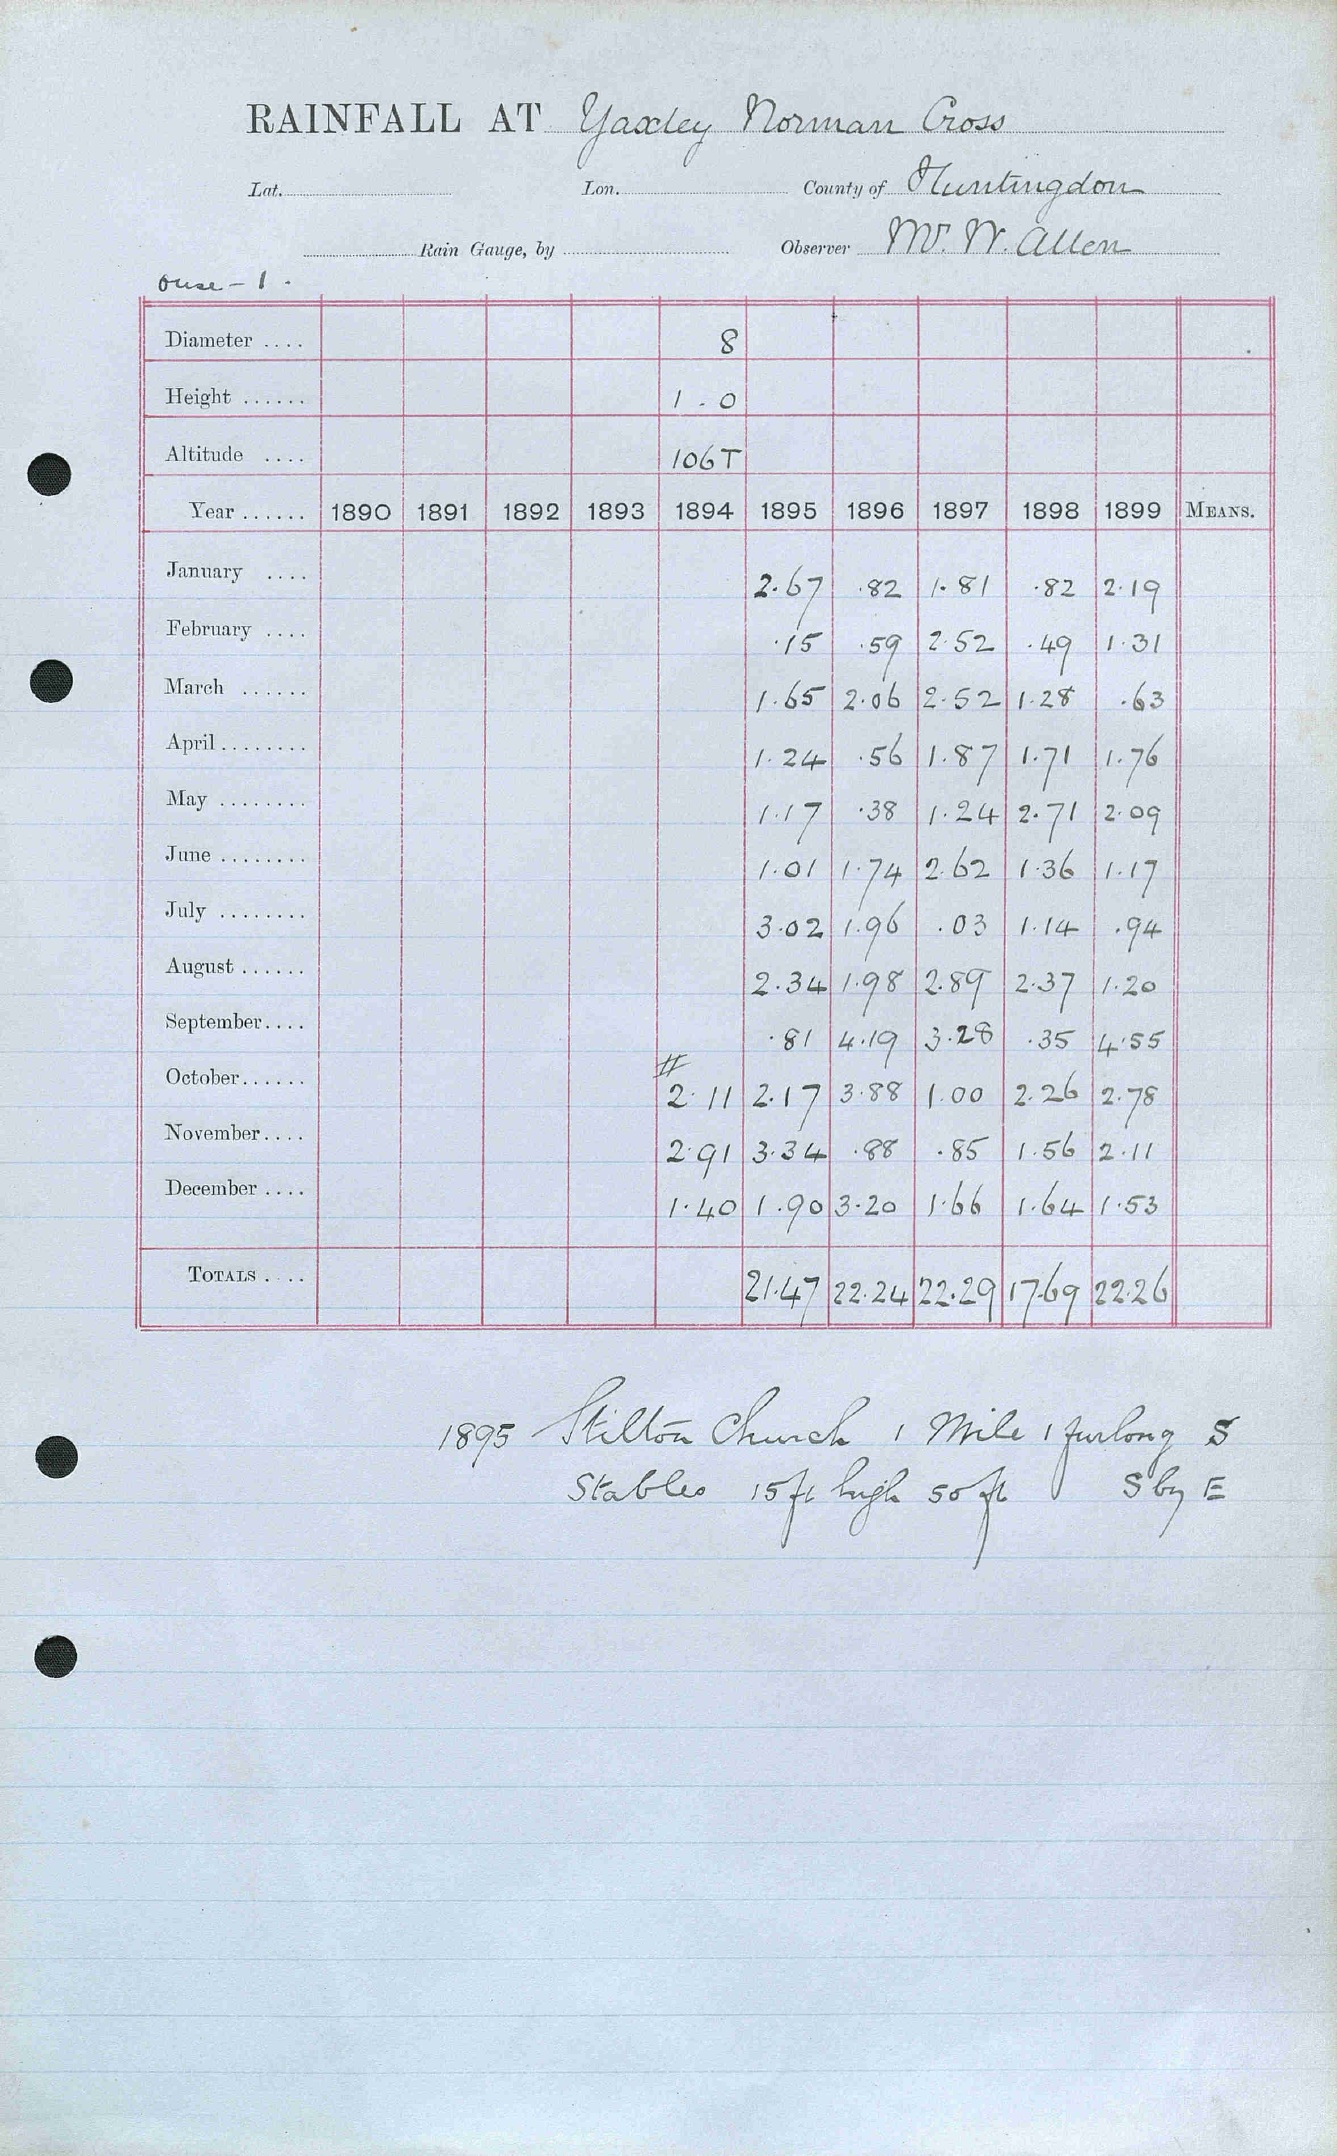 RAINFALL AT Yaxley Norman Cross
Lat. Lon. County of Huntingdon
Rain Gauge, by Observer Mr. W. Allen
Ouse - 1.
Diameter .... 8
Height ...... 1 . 0
Altitude .... 106T
Year ...... 1890 1891 1892 1893 1894 1895 1896 1897 1898 1899 MEANS.
January .... 2.67 .82 1.81 .82 2.19
February .... .15 .59 2.52 .49 1.31
March ...... 1.65 2.06 2.52 1.28 .63
April ........ 1.24 .56 1.87 1.71 1.76
May ........ 1.17 .38 1.24 2.71 2.09
June ........ 1.01 1.74 2.62 1.36 1.17
July ........ 3.02 1.96 .03 1.14 .94
August ...... 2.34 1.98 2.89 2.37 1.20
September.... .81 4.19 3.28 .35 4.55
#
October...... 2.11 2.17 3.88 1.00 2.26 2.78
November.... 2.91 3.34 .88 .85 1.56 2.11
December .... 1.40 1.90 3.20 1.66 1.64 1.53
TOTALS .... 21.47 22.24 22.29 17.69 22.26
1895 Stilton Church 1 Mile 1 furlong S
Stables 15 ft high 50 ft S by E